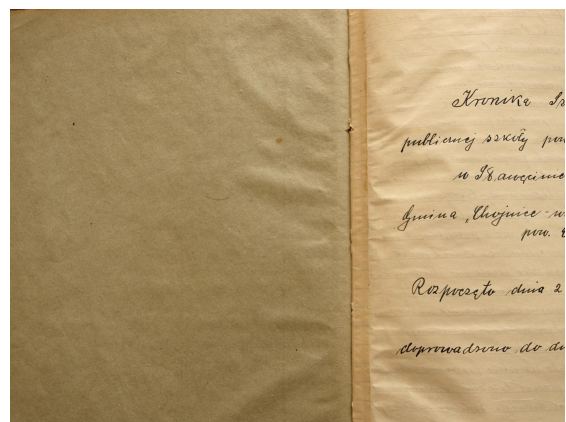 Kronika
publicznej szkoły
w
Gmina „Chojnice -
pow.
Rozpoczęto dnia 2
doprowadzono do